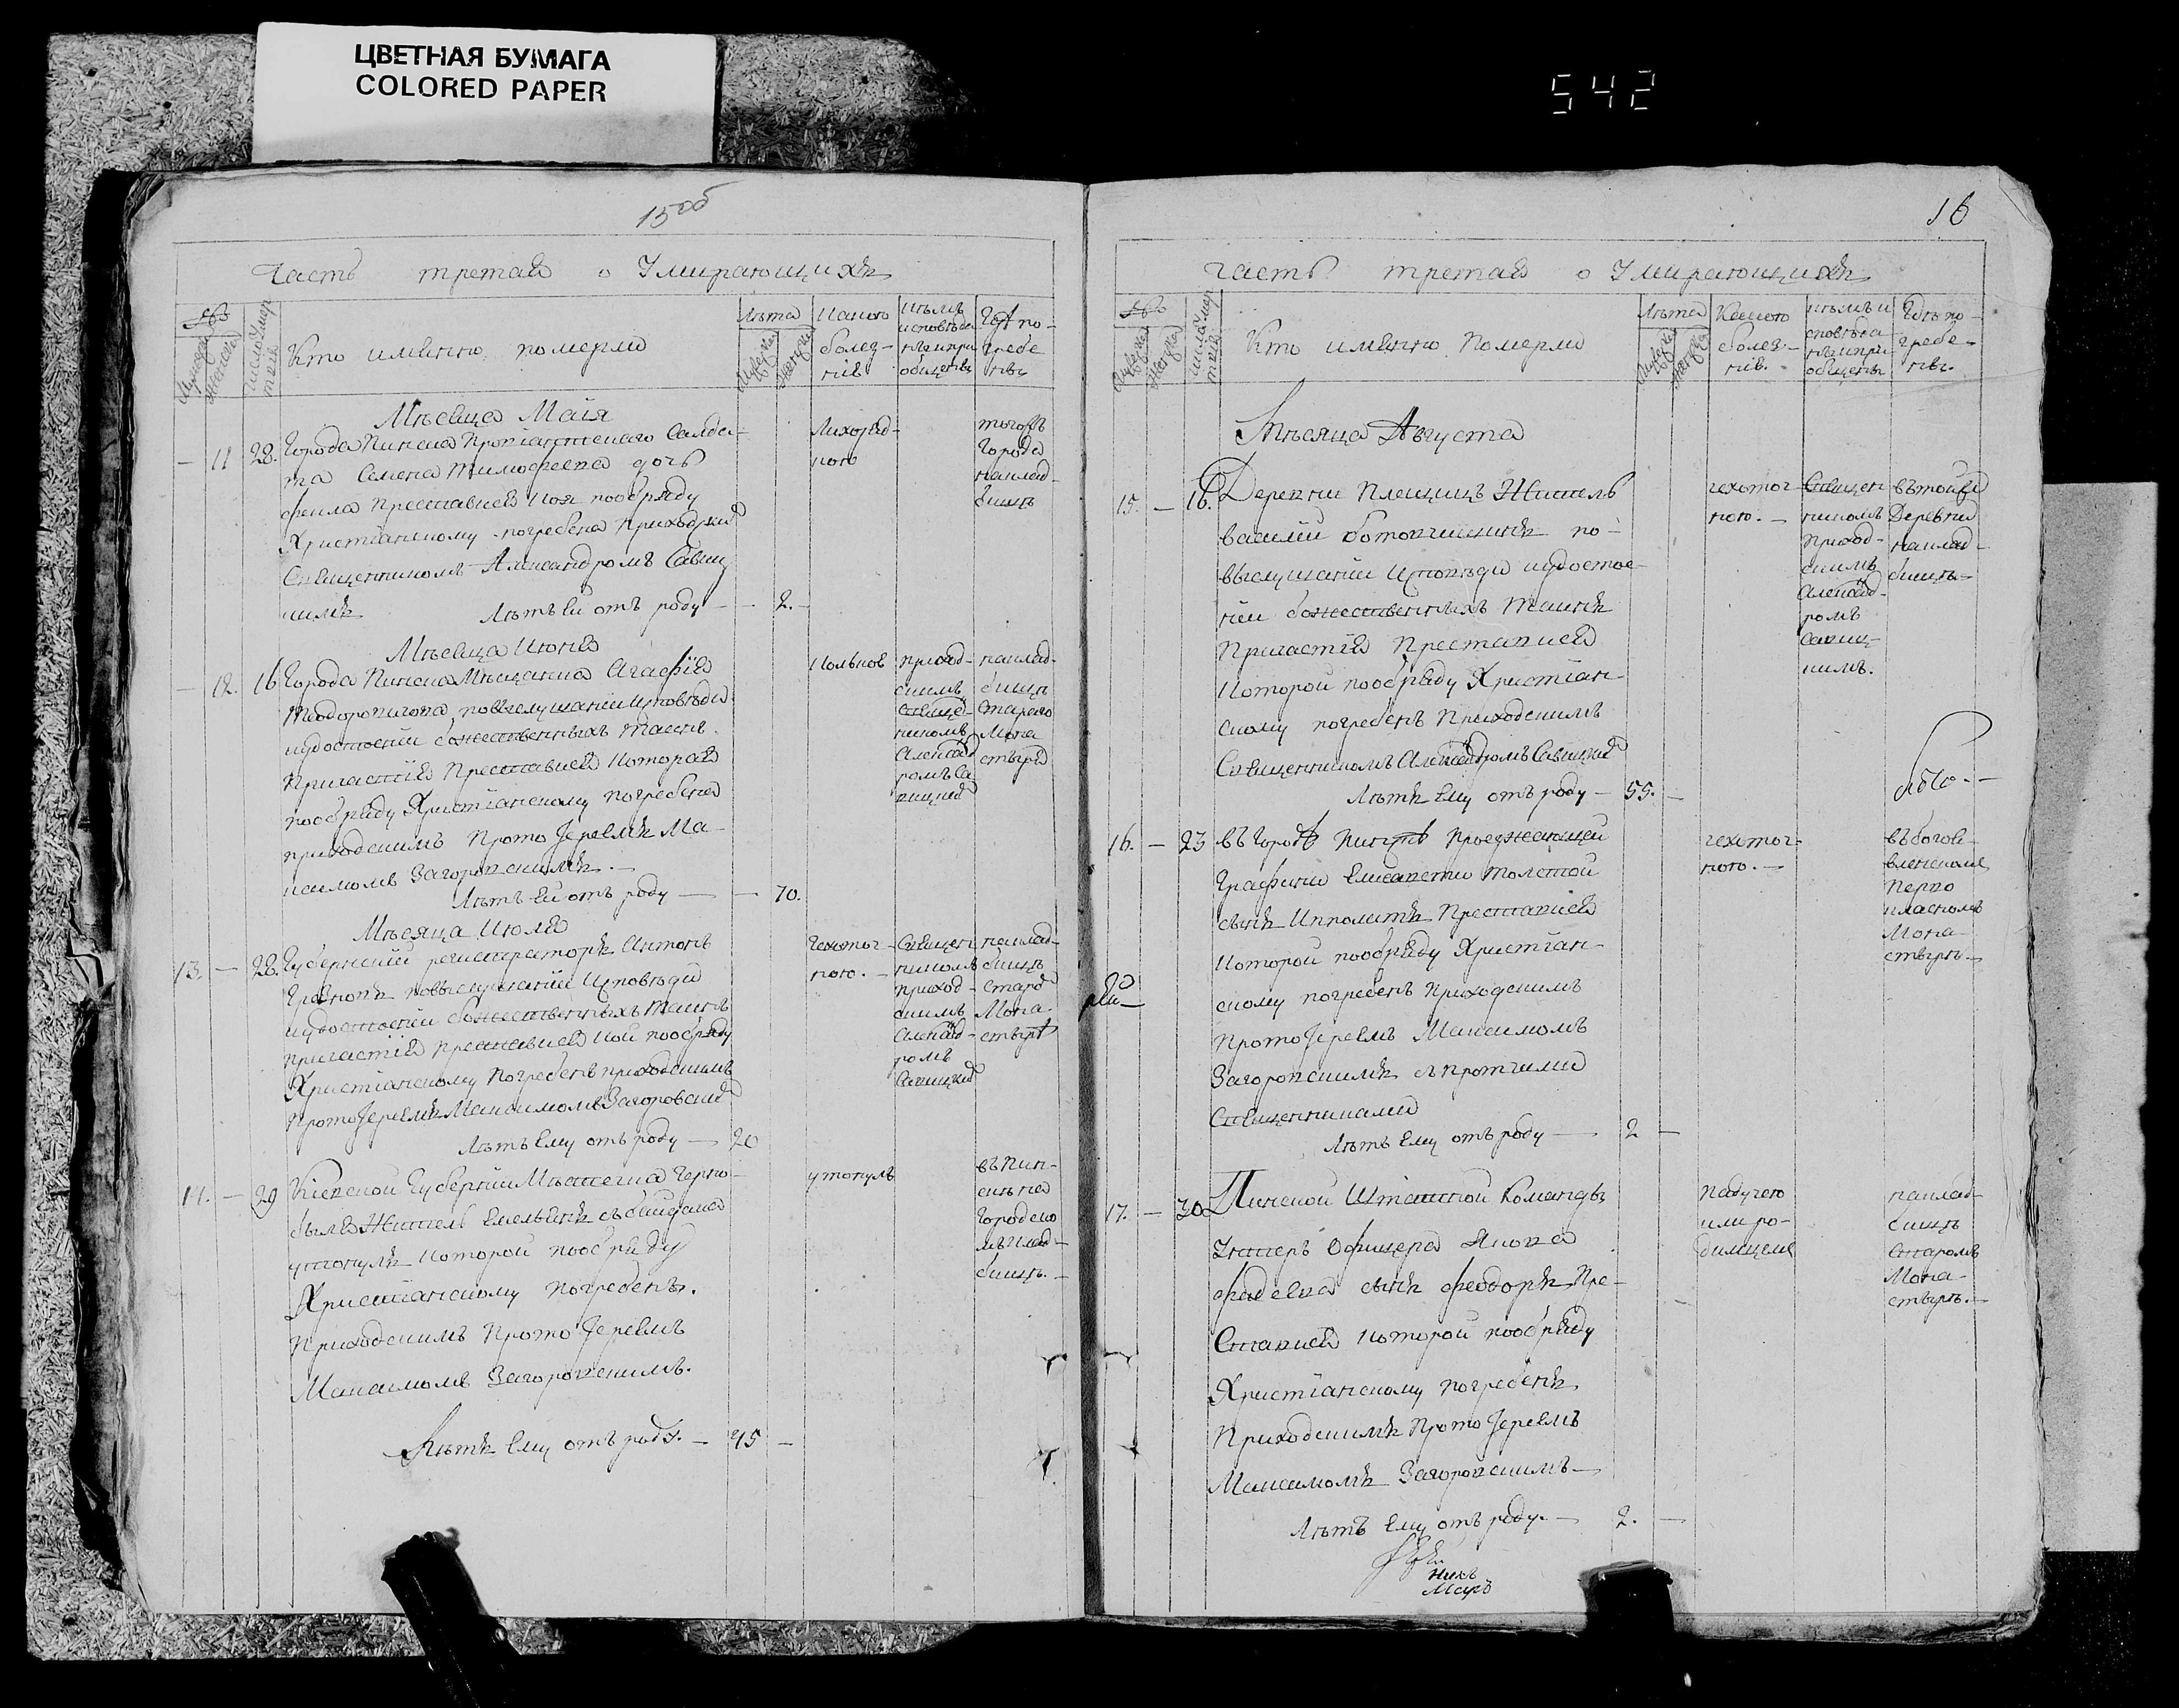 ЦВЕТНАЯ БУМАГА
COLORED PAPER
542
15об
Часть третая о Умирающихъ
Кто именно померло
Лѣта
Какою болез-нiю
Кѣмъ исповѣда ны и при общены
Гдѣ по-гребе ны
Мѣсяца Маiя
11 28. Города Пинска Провiантскаго Салда-
та Семена Тимофеева дочь
фекла преставися коя пообряду
Христiанскому погребена приходским
Священникомъ Александромъ Савиц
кимъ Лѣтъ ей отъ роду — 2.
Лихорад-
кою
тогожъ
Города
на клад-
бищѣ
Мѣсяца Июня
12. 16 Города Пинска Мѣщанка Агафiя
Теодоровичова повыслушанiи исповѣди
иудостоенiи божественныхъ таинъ
причастiя преставися которая
пообряду Христiанскому погребена
приходскимъ Прото Iереемъ Ма-
ксимомъ Загоровскимъ. —
Лѣтъ ей отъ роду — 70.
Кольков
приход-
скимъ
Свяще-
ником
Алексад
ромъ Са
вицким
на клад-
бищѣ
Стараго
Мона
стыря
Мѣсяца Июля
13. — 28. Губернскiй регистраторъ Антонъ
повыслушанiи исповѣди
иудостоенiи божественныхъ таинъ
причастiя преставися кой пообряду
Христiанскому погребенъ приходскимъ
ПротоIереемъ Максимомъ Загоровским
Лѣтъ ему отъ роду — 20
чехотог-
ною. —
Священ
никомъ
приход-
скимъ
Алексад-
ромъ
Савицким
на клад-
бищѣ
стара
Мона-
стыря
14. — 29 Кiевской Губернiи Мѣстечка Черно-
быля Житель Емельянъ
утонулъ которой пообряду
Христiанскому погребенъ.
Приходскимъ Прото Iереемъ
Максимомъ Загоровскимъ.
Лѣтъ Ему отъ роду. — 45 —
утонулъ
въ Пин-
ску на
городско
мъ клад-
бищѣ. —
16
часть третая о Умирающихъ
Кто именно померло
Лѣта
Какою болез-нiю.
Кѣмъ и сповѣда ны и при общены
Гдѣ по-гребе-ны.
Мѣсяца Августа
15. — 16. Деревни Плещицъ Житель
василiй по-
выслушанiи исповѣди иудостое-
нiи божественныхъ таинъ
Причастiя Преставися
Которой пообряду Христiан-
скому погребенъ Приходскимъ
Священникомъ Алексадромъ Савицким
Лѣтъ Ему отъ роду — 55. —
чехотог-
ною. —
Священ
никомъ
Приход-
скимъ
Алексад-
ромъ
Савиц-
кимъ.
въ той же
Деревни
на клад-
бищѣ —
16. — 23 въ Городѣ Пинскѣ Проезжающей
Графини Елисавети Толстой
сынъ Ипполитъ Преставися
Которой пообряду Христiан-
скому погребенъ Приходскимъ
ПротоIереемъ Максимомъ
Загоровскимъ съ протчими
Священниками
Лѣтъ Ему отъ роду — 2 —
чехотог-
ною. —
въ богов-
вленском
Перво
класном
Мона-
стырѣ —
17. — 30 Пинской Штатной Команды
Унтеръ Офицера Якова
фадеева сынъ феодоръ Пре-
Ставися которой пообряду
Христiанскому погребенъ
Приходскимъ Прото Iереемъ
Максимомъ Загоровскимъ —
Лѣтъ Ему отъ роду. — 2. —
падучею
или ро-
димцем
на клад-
бищѣ
Старомъ
Мона-
стырѣ. —